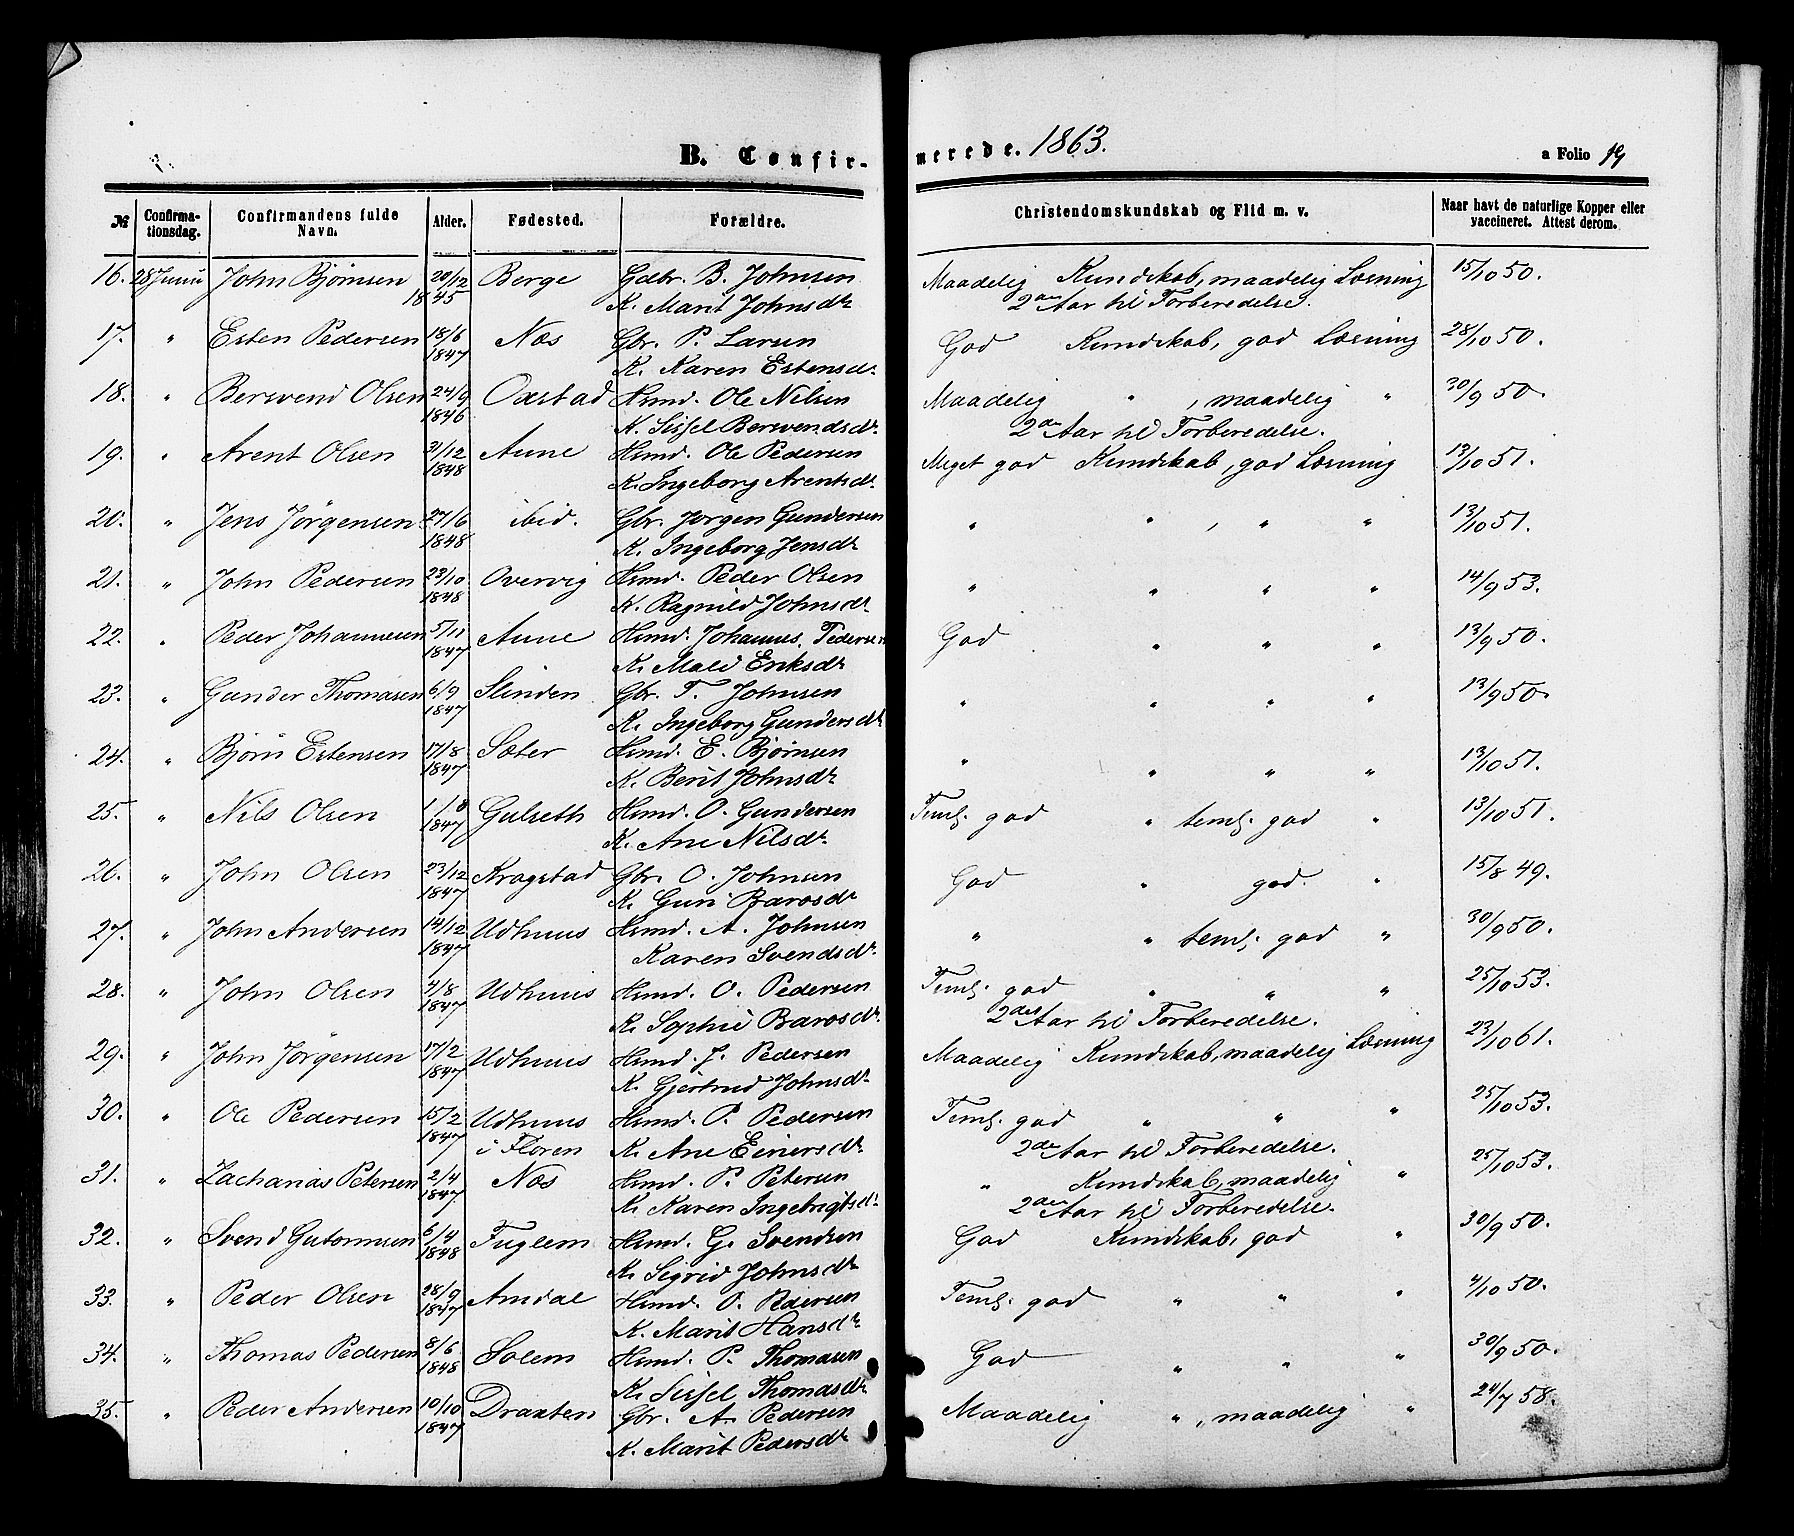 B. Confirmerede. 1863. a Folio 19
№ Confirmationsdag. Confirmandens fulde Navn. Alder. Fødested. Forældre. Christendomskundskab og Flid m. v. Naar havt de naturlige Kopper eller vaccineret. Attest derom.
16. 28 Juni John Bjørnsen 20/12 Berge Gdbr. B. Johnsen Maadelig Kundskab, maadelig Læsning 15/10 50.
1845 K. Marit Johnsdr 2det Aar til Forberedelse.
17. " Esten Pedersen 18/6 Næs Gbr. P. Larsen God Kundskab, god Læsning 28/10 50.
1847 K. Karen Estensdr
18. " Bersvend Olsen 24/9 Oxstad Hsmd. Ole Nilsen Maadelig " , maadelig " 30/9 50.
1846 K. Sissel Bersvendsdr 2det Aar til Forberedelse.
19. " Arent Olsen 21/12 Aune Hsmd. Ole Pedersen Meget god Kundskab, god Læsning 13/10 51.
1848 K. Ingeborg Arentsdr
20. " Jens Jörgensen 27/6 ibid. Gbr. Jorgen Gundersen " " , " " 13/10 51.
1848 K. Ingeborg Jensdr
21. " John Pedersen 23/10 Overvig Hsmd. Peder Olsen " " " " 14/9 53.
1848 K. Ragnild Johnsdr
22. " Peder Johannesen 5/11 Aune Hsmd. Johannes Pedersen God " " " 13/9 50.
1847 K. Mali Eriksdr
23. " Gunder Thomasen 6/9 Slinden Gbr. T. Johnsen " " " " 13/9 50.
1847 K. Ingeborg Gundersdr
24. " Bjørn Estensen 17/8 Sæter Hsmd. E. Bjørnsen " " " " 13/10 51.
1847 K. Berit Johnsdr
25. " Nils Olsen 1/8 Gulseth Hsmd. O. Gundersen Teml. god " teml. god " 13/10 51.
1847 K. Ane Nilsdr
26. " John Olsen 23/12 Krogstad Gbr. O. Johnsen God " god. " 15/8 49.
1847 K. Guri Barosdr
27. " John Andersen 14/12 Udhuus Hsmd. A. Johnsen " " teml. god " 30/9 50.
1847 Karen Svendsdr
28. " John Olsen 4/8 Udhuus Hsmd. O. Pedersen Teml. god " " " 25/10 53.
1847 K. Sophie Barosdr 2det Aar til Forberedelse.
29. " John Jörgensen 17/2 Udhuus Hsmd. J. Pedersen Maadelig Kundskab, maadelig Læsning 23/10 61.
1847 K. Gjertrud Johnsdr
30. " Ole Pedersen 15/2 Udhuus Hsmd. P. Pedersen Teml. god " " " 25/10 53.
1847 i Floren K. Ane Einersdr 2det Aar til Forberedelse.
31. " Zacharias Petersen 2/4 Næs Hsmd. P. Petersen " Kundskab, maadelig " 25/10 53.
1847 K. Karen Ingebrigtsdr 2det Aar til Forberedelse.
32. " Svend Gutormsen 6/4 Fuglem Hsmd. G. Svendsen God Kundskab, god " 30/9 50.
1848 K. Sigrid Johnsdr
33. " Peder Olsen 28/9 Amdal Hsmd. O. Pedersen Teml. god " " " 4/10 50.
1847 K. Marit Hansdr
34. " Thomas Pedersen 8/6 Solem Hsmd. P. Thomasen God " " " 30/9 50.
1848 K. Sissel Thomasdr
35. " Peder Andersen 10/10 Draxten Gbr. A. Pedersen Maadelig " , maadelig " 24/7 58.
1847 K. Marit Pedersdr